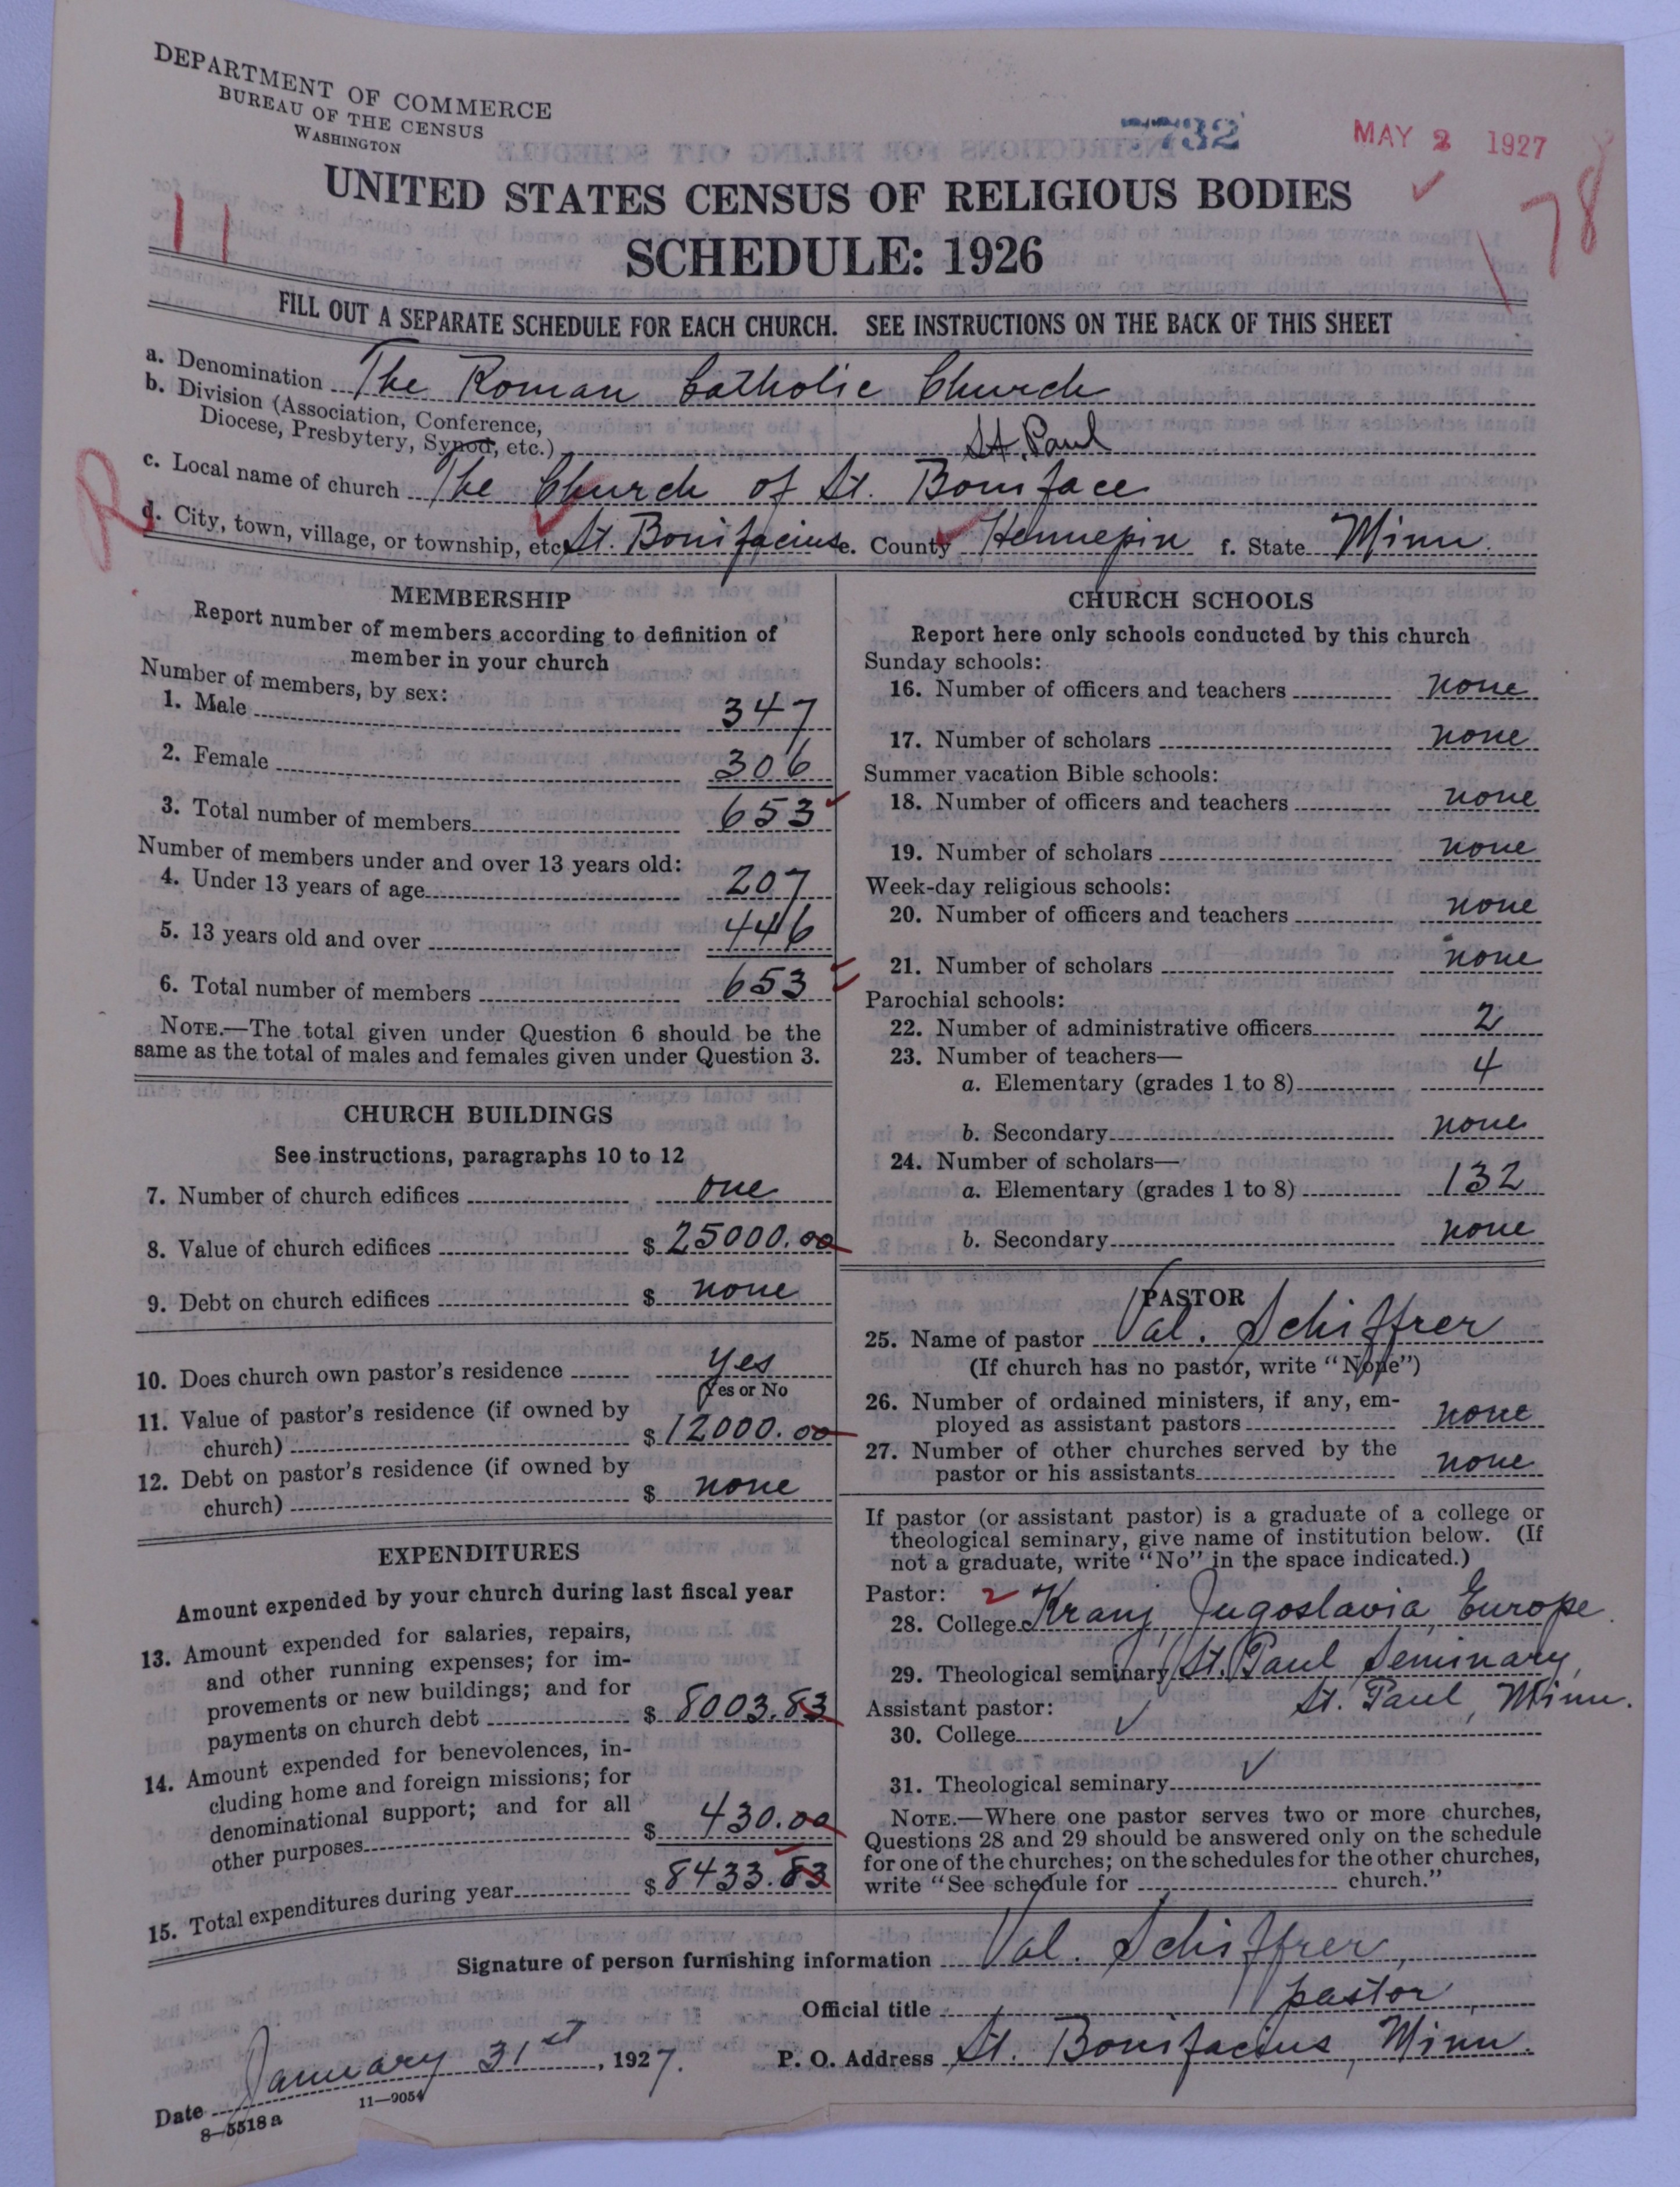 DEPARTMENT OF COMMERCE
BUREAU OF THE CENSUS
WASHINGTON
7732
MAY 2 1927
11
78
UNITED STATES CENSUS OF RELIGIOUS BODIES
SCHEDULE: 1926
FILL OUT A SEPARATE SCHEDULE FOR EACH CHURCH. SEE INSTRUCTIONS ON THE BACK OF THIS SHEET
a. Denomination The Roman Catholic Church
b. Division (Association, Conference,
Diocese, Presbytery, Synod, etc.) St. Paul
c. Local name of church The Church of St. Boniface
R
d. City, town, village, or township, etc. St. Bonifacius e. County Hennepin f. State Minn.
MEMBERSHIP
Report number of members according to definition of
member in your church
Number of members, by sex:
1. Male 347
2. Female 306
3. Total number of members 653
Number of members under and over 13 years old:
4. Under 13 years of age 207
5. 13 years old and over 446
6. Total number of members 653
NOTE.—The total given under Question 6 should be the
same as the total of males and females given under Question 3.
CHURCH BUILDINGS
See instructions, paragraphs 10 to 12
7. Number of church edifices one
8. Value of church edifices $ 25000.00
9. Debt on church edifices $ none
10. Does church own pastor's residence yes
Yes or No
11. Value of pastor's residence (if owned by
church) $ 12000.00
12. Debt on pastor's residence (if owned by
church) $ none
EXPENDITURES
Amount expended by your church during last fiscal year
13. Amount expended for salaries, repairs,
and other running expenses; for im-
provements or new buildings; and for
payments on church debt $ 8003.83
14. Amount expended for benevolences, in-
cluding home and foreign missions; for
denominational support; and for all
other purposes $ 430.00
15. Total expenditures during year $ 8433.83
CHURCH SCHOOLS
Report here only schools conducted by this church
Sunday schools:
16. Number of officers and teachers none
17. Number of scholars none
Summer vacation Bible schools:
18. Number of officers and teachers none
19. Number of scholars none
Week-day religious schools:
20. Number of officers and teachers none
21. Number of scholars none
Parochial schools:
22. Number of administrative officers 2
23. Number of teachers—
a. Elementary (grades 1 to 8) 4
b. Secondary none
24. Number of scholars—
a. Elementary (grades 1 to 8) 132
b. Secondary none
PASTOR
25. Name of pastor Val. Schiffrer
(If church has no pastor, write "None")
26. Number of ordained ministers, if any, em-
ployed as assistant pastors none
27. Number of other churches served by the
pastor or his assistants none
If pastor (or assistant pastor) is a graduate of a college or
theological seminary, give name of institution below. (If
not a graduate, write "No" in the space indicated.)
Pastor: 2
28. College Kranj, Jugoslavia, Europe.
29. Theological seminary St. Paul Seminary,
Assistant pastor: St. Paul, Minn.
30. College
31. Theological seminary
NOTE.—Where one pastor serves two or more churches,
Questions 28 and 29 should be answered only on the schedule
for one of the churches; on the schedules for the other churches,
write "See schedule for church."
Signature of person furnishing information Val. Schiffrer,
Official title pastor,
Date January 31st, 1927. P. O. Address St. Bonifacius, Minn.
8—5518a 11—9054